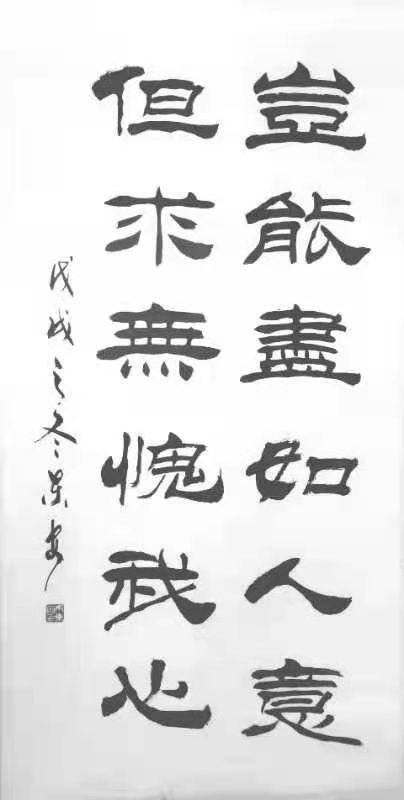 豈能盡如人意
但求無愧我心
戊戌之冬